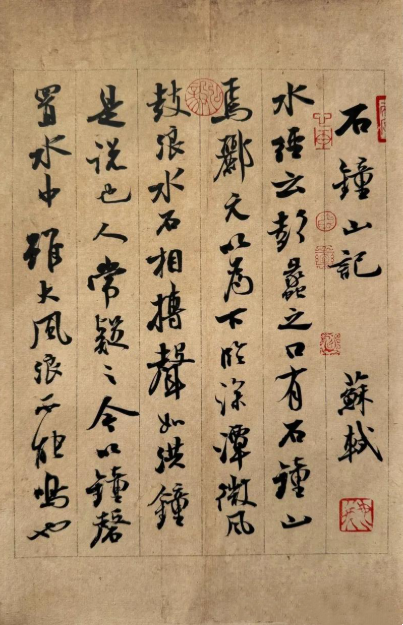 石鐘山記 蘇軾
水經云彭蠡之口有石鐘山
焉酈元以為下臨深潭微風
鼓浪水石相搏聲如洪鐘
是說也人常疑之今以鐘磬
置水中雖大風浪不能鳴也